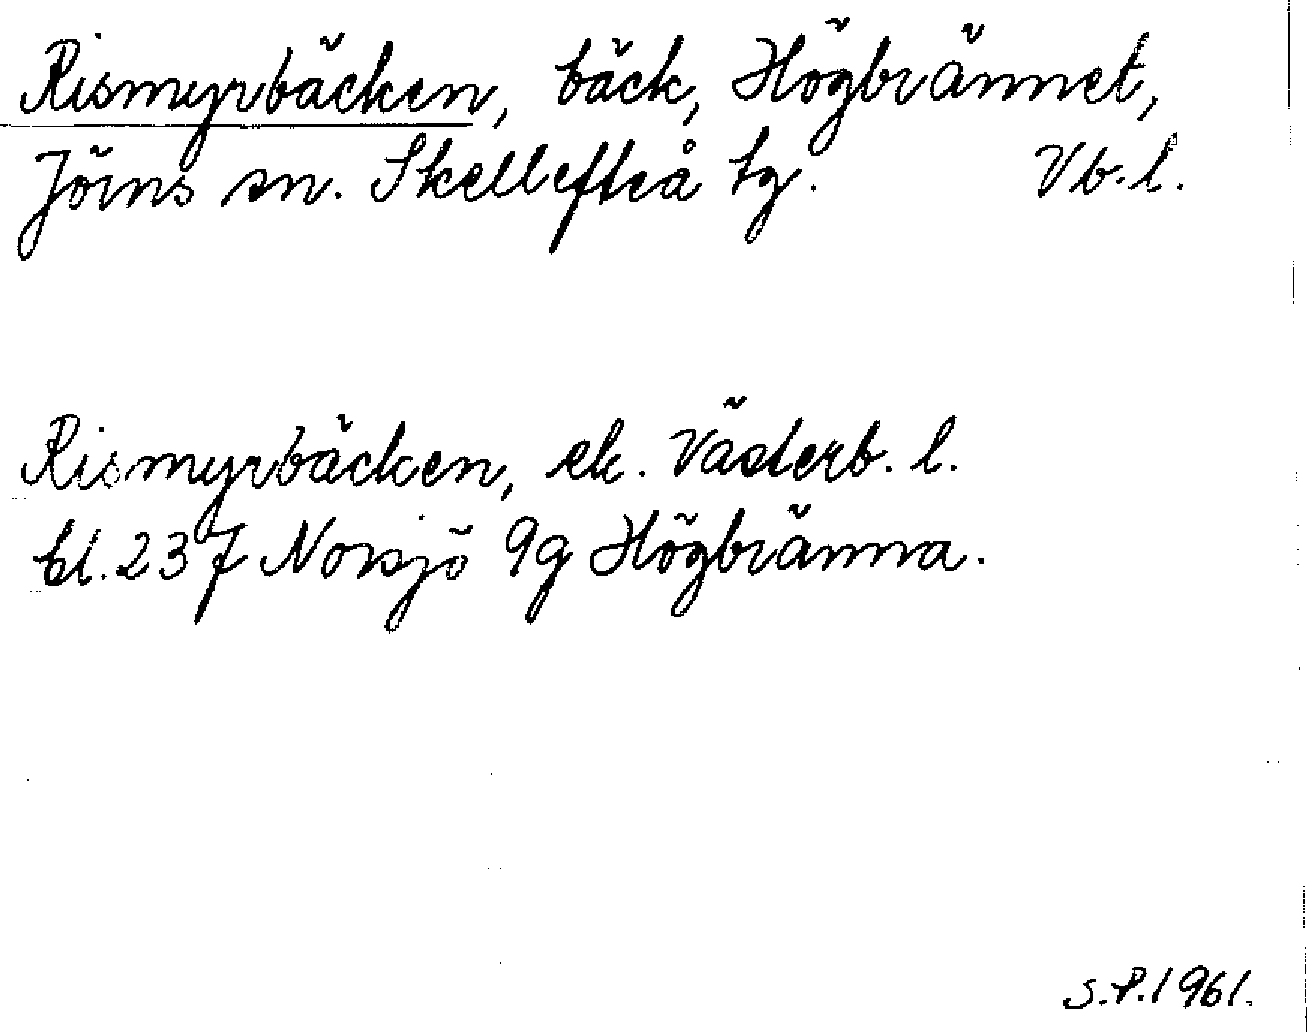 Rismyrbäcken, bäck, Högbrännet,
Jörns sn. Skellefteå tg. Vb. l.
Rismyrbäcken, ek. Västerb. l.
bl. 237 Norsjö 9g Högbränna.
S.P. 1961.